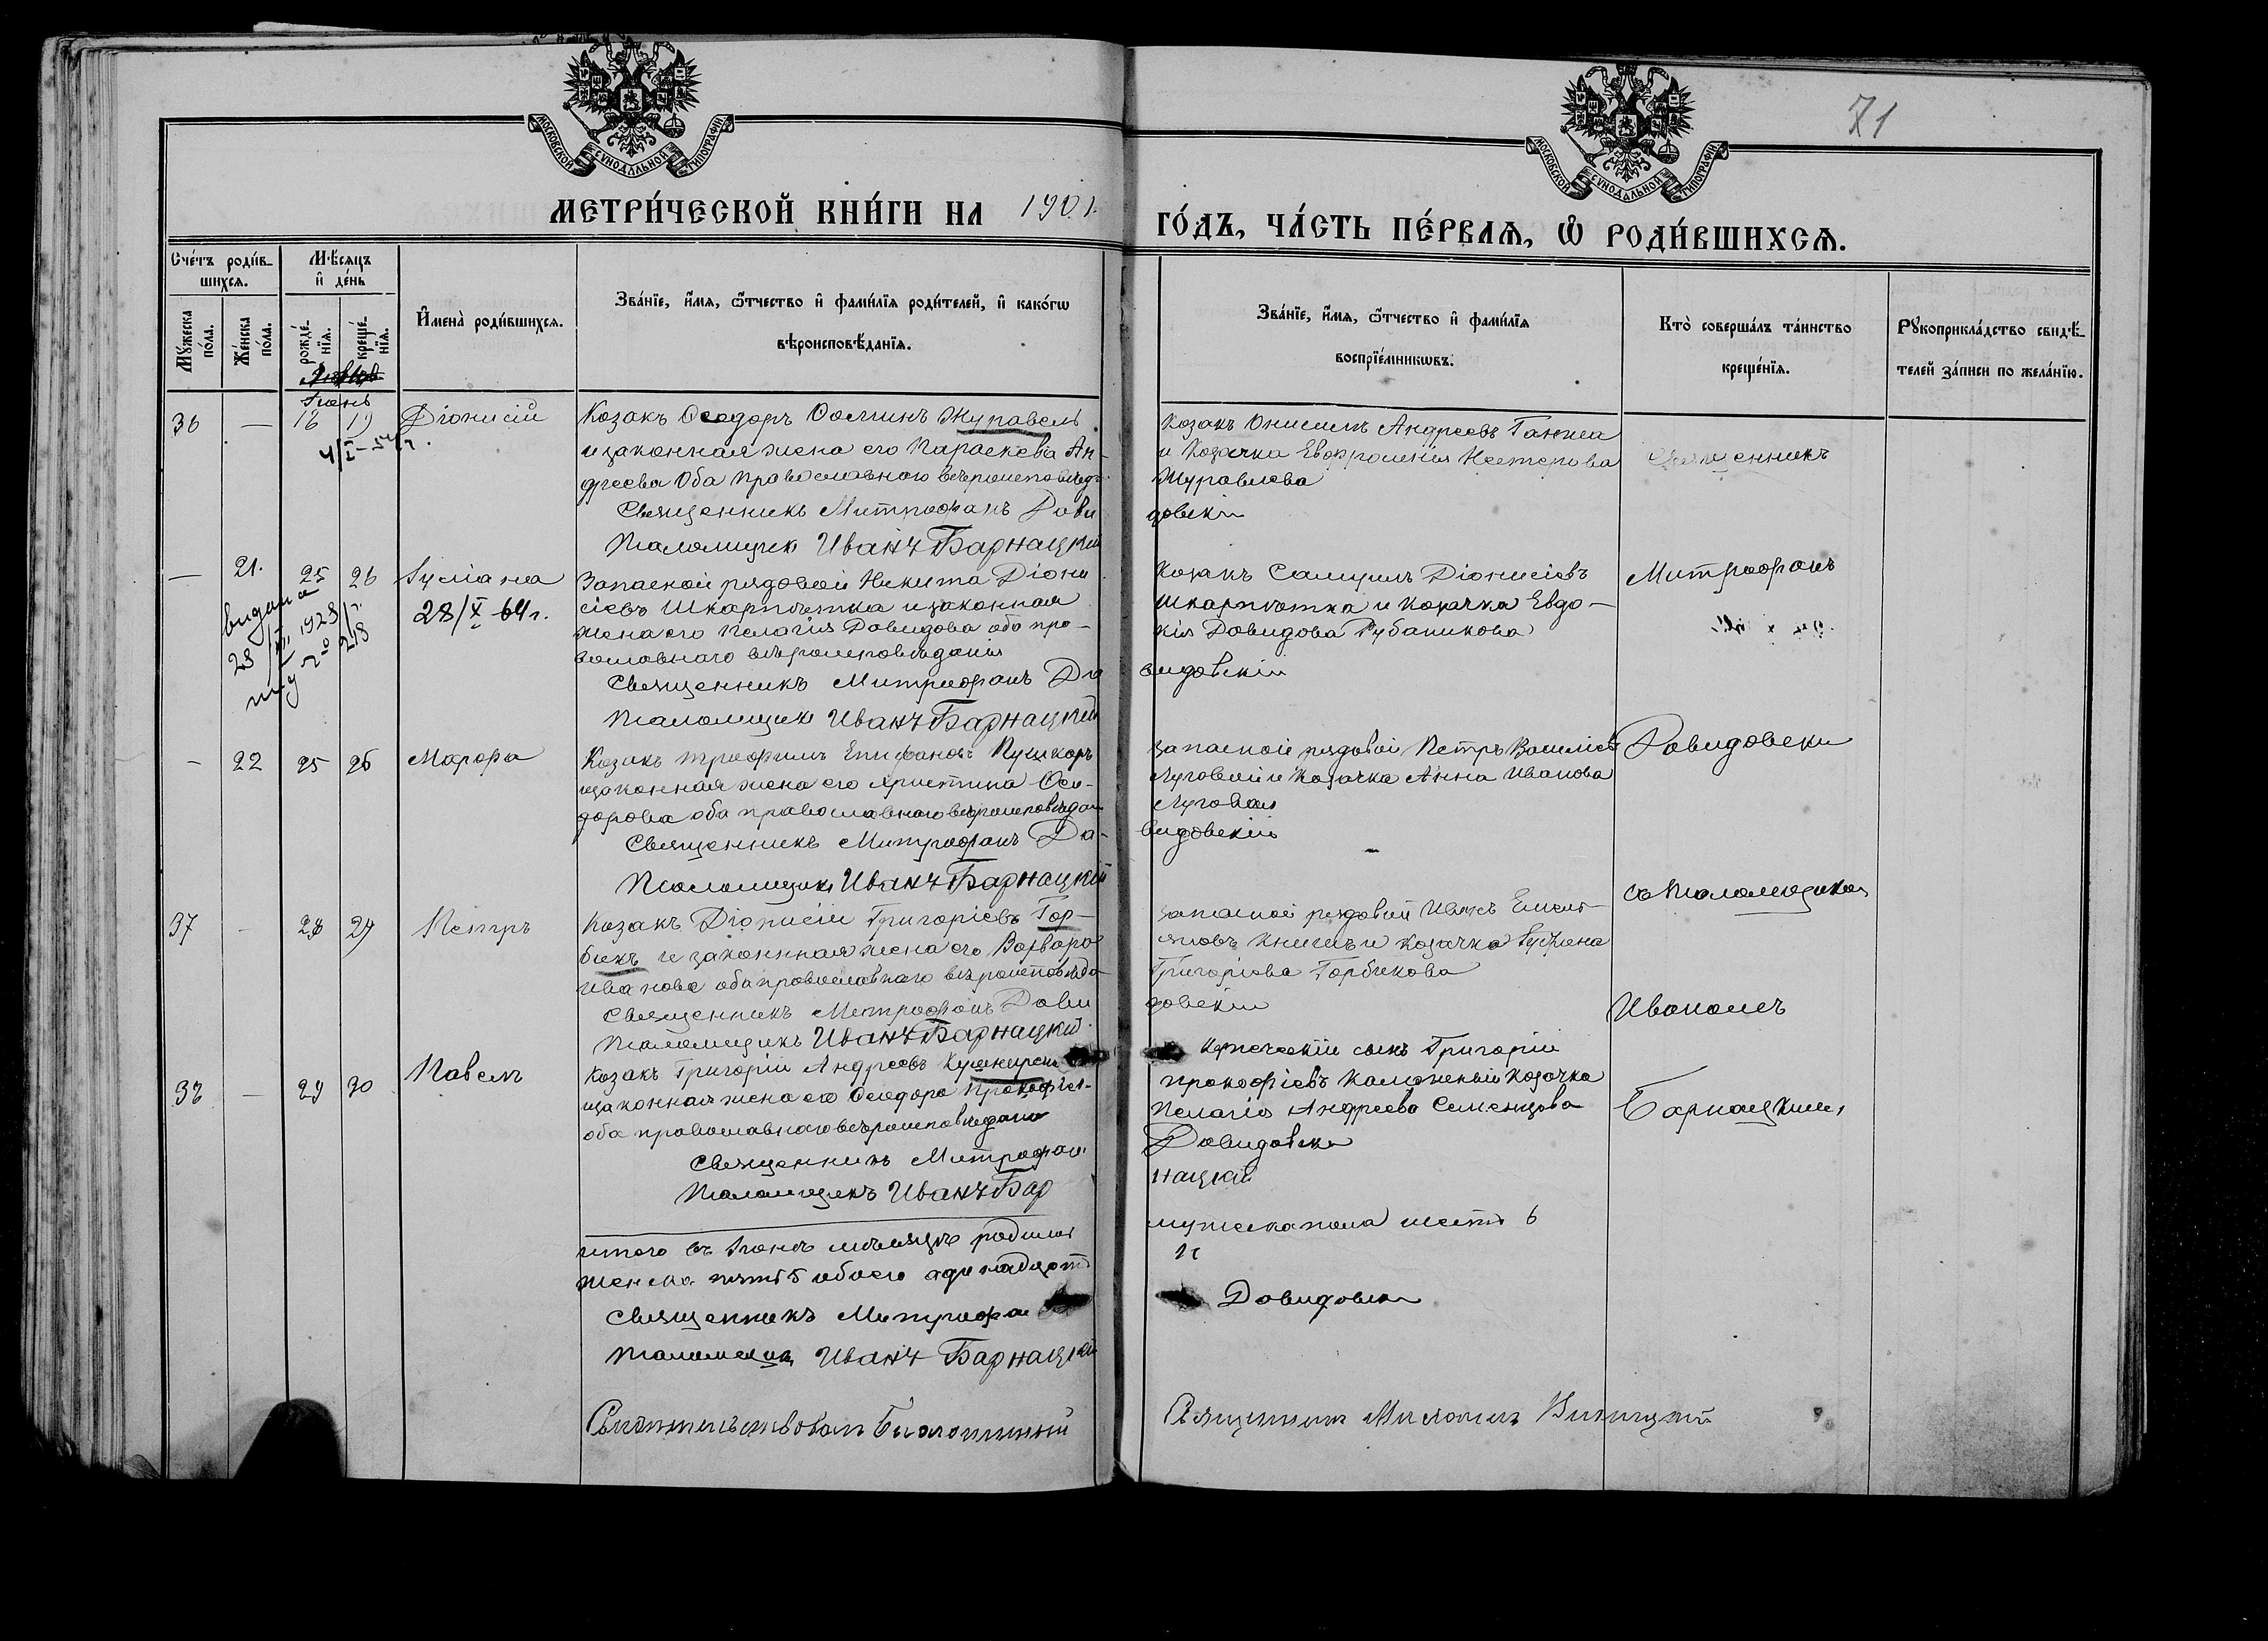 71
МОСКОВСКОЙ СѴНОДАЛЬНОЙ ТИПОГРАФІИ
МОСКОВСКОЙ СѴНОДАЛЬНОЙ ТИПОГРАФІИ
МЕТРИ́ЧЕСКОЙ КНИ́ГИ НА 1901.
ГО́ДЪ, ЧА́СТЬ ПЕ́РВАѦ, Ѡ РОДИ́ВШИХСѦ.
Сче́тъ роди́в-
шихсѧ.
Мꙋ́жеска по́ла.
Же́нска по́ла.
Мѣ́сѧцъ
и҆ де́нь
рожде́-
нїѧ.
креще́-
нїѧ.
И҆мена̀ роди́вшихсѧ.
Зва́нїе, и҆́мѧ, ѻ҆́тчество и҆ фами́лїѧ роди́телей, и҆ како́гѡ
вѣроисповѣ́данїѧ.
Зва́нїе, и҆́мѧ, ѻ҆́тчество и҆ фами́лїѧ
воспрїе́мникѡвъ.
Кто̀ соверша́лъ та́инство
креще́нїѧ.
Рꙋкоприкла́дство свидѣ́-
телей за́писи по жела́нїю.
Іюнь
36 — 18 19 Діонисій
Козакъ Ѳеодоръ Ѳоминъ Журавель
и законная жена его Параскева Ан-
дреева Оба православного вѣроисповѣд.
Священникъ Митрофанъ Дави
Псаломщикъ Иванъ Барнацкій
Козакъ Онисимъ Андреевъ Ганжа
и Козачка Евфросинія Нестерова
Журавлева
довскій
Священникъ
— 21. 25 26 Іуліана
28/X 64 г.
видана
28 1928 г.
218
Запасной рядовой Никита Діони
сіевъ Шкарпетка и законная
жена его Пелагія Давидова оба пра-
вославнаго вѣроисповѣданія
Священникъ Митрофанъ Да
Псаломщикъ Иванъ Барнацкій
Козакъ Самуилъ Діонисіевъ
Шкарпетка и козачка Евдо-
кія Давидова Рубаникова
видовскій
Митрофанъ
— 22 25 26 Марфа
Козакъ Трифилъ Епифановъ Пушкарь
и законная жена его Христина Ѳео-
дорова оба православнаго вѣроисповѣдан
Священникъ Митрофанъ Да-
Псаломщикъ Иванъ Барнацкій
Запасной рядовой Петръ Василіевъ
Луговый и Козачка Анна Иванова
Луговая
видовскій
Давидовскій
37 - 28 29 Петръ
Козакъ Діонисій Григоріевъ Гор-
бикъ и законная жена его Варвара
Иванова оба православнаго вѣроисповѣда
Священникъ Митрофанъ Дави
Псаломщикъ Иванъ Барнацкій
Запасной рядовой Иванъ Емель-
яновъ Книшъ и козачка
Григоріева Горбикова
довскій
съ Псаломщикомъ
Иваномъ
38 — 29 30 Павелъ
Козакъ Григорій Андреевъ
и законная жена его Ѳеодора Прокофіев-
оба православнаго вѣроисповѣдан
Священникъ Митрофан
Псаломщикъ Иванъ Бар
сынъ Григорій
Прокофіевъ Козачка
Пелагія Андреева Семенцова
Давидовскій
нацкій
Барнацкимъ
Итого въ Іюнѣ мѣсяцѣ родилось
мужеска пола шесть 6
женска пять 5 обоего одинадцать
11
Священникъ Митрофан
Давидовскій
Псаломщикъ Иванъ Барнацкій
Свидѣтельствовалъ Благочинный
Священникъ